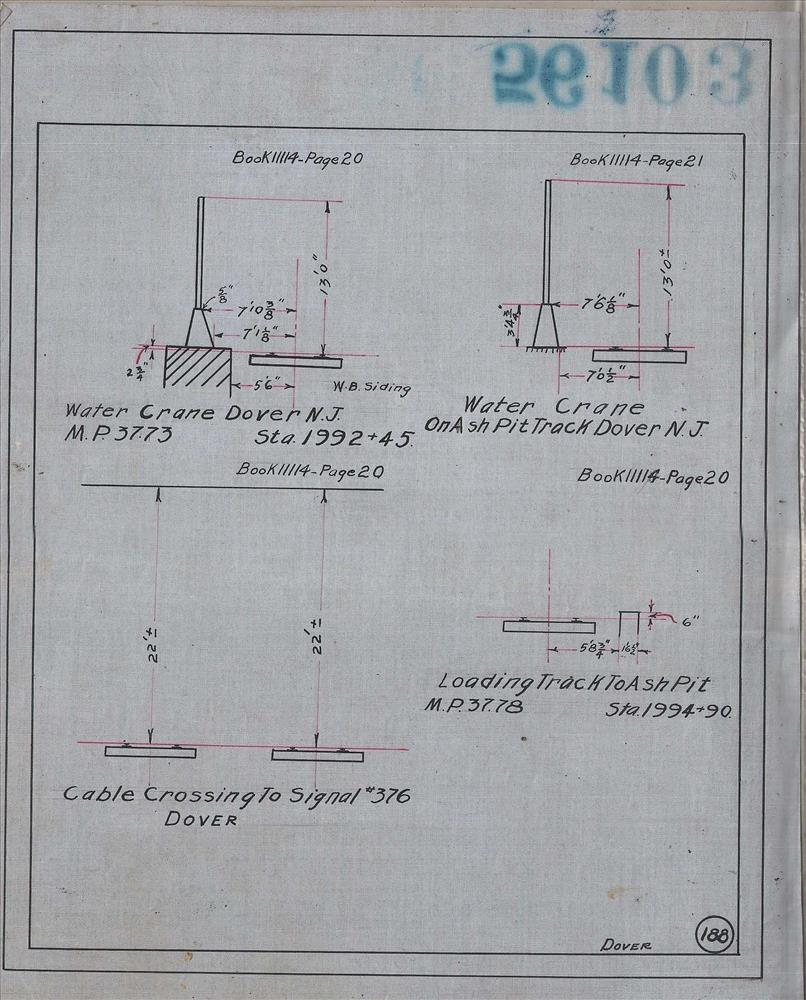 56103
Book 11114-Page 20
5/8"
13'0"
7'0 3/8"
7'1 1/8"
2 3/4"
5'6"
W.B. Siding
Water Crane Dover N.J.
M.P. 37.73 Sta. 1992+45.
Book 11114-Page 21
13'0±
7'6 1/8"
3'4 3/4"
7'0 1/2"
Water Crane
On Ash Pit Track Dover N.J.
Book 11114-Page 20
22'±
22'±
Cable Crossing To Signal #376
DOVER
Book 11114-Page 20
6"
5'8 3/4"
1'6 1/2"
Loading Track To Ash Pit
M.P. 37.78 Sta. 1994+90.
DOVER
188